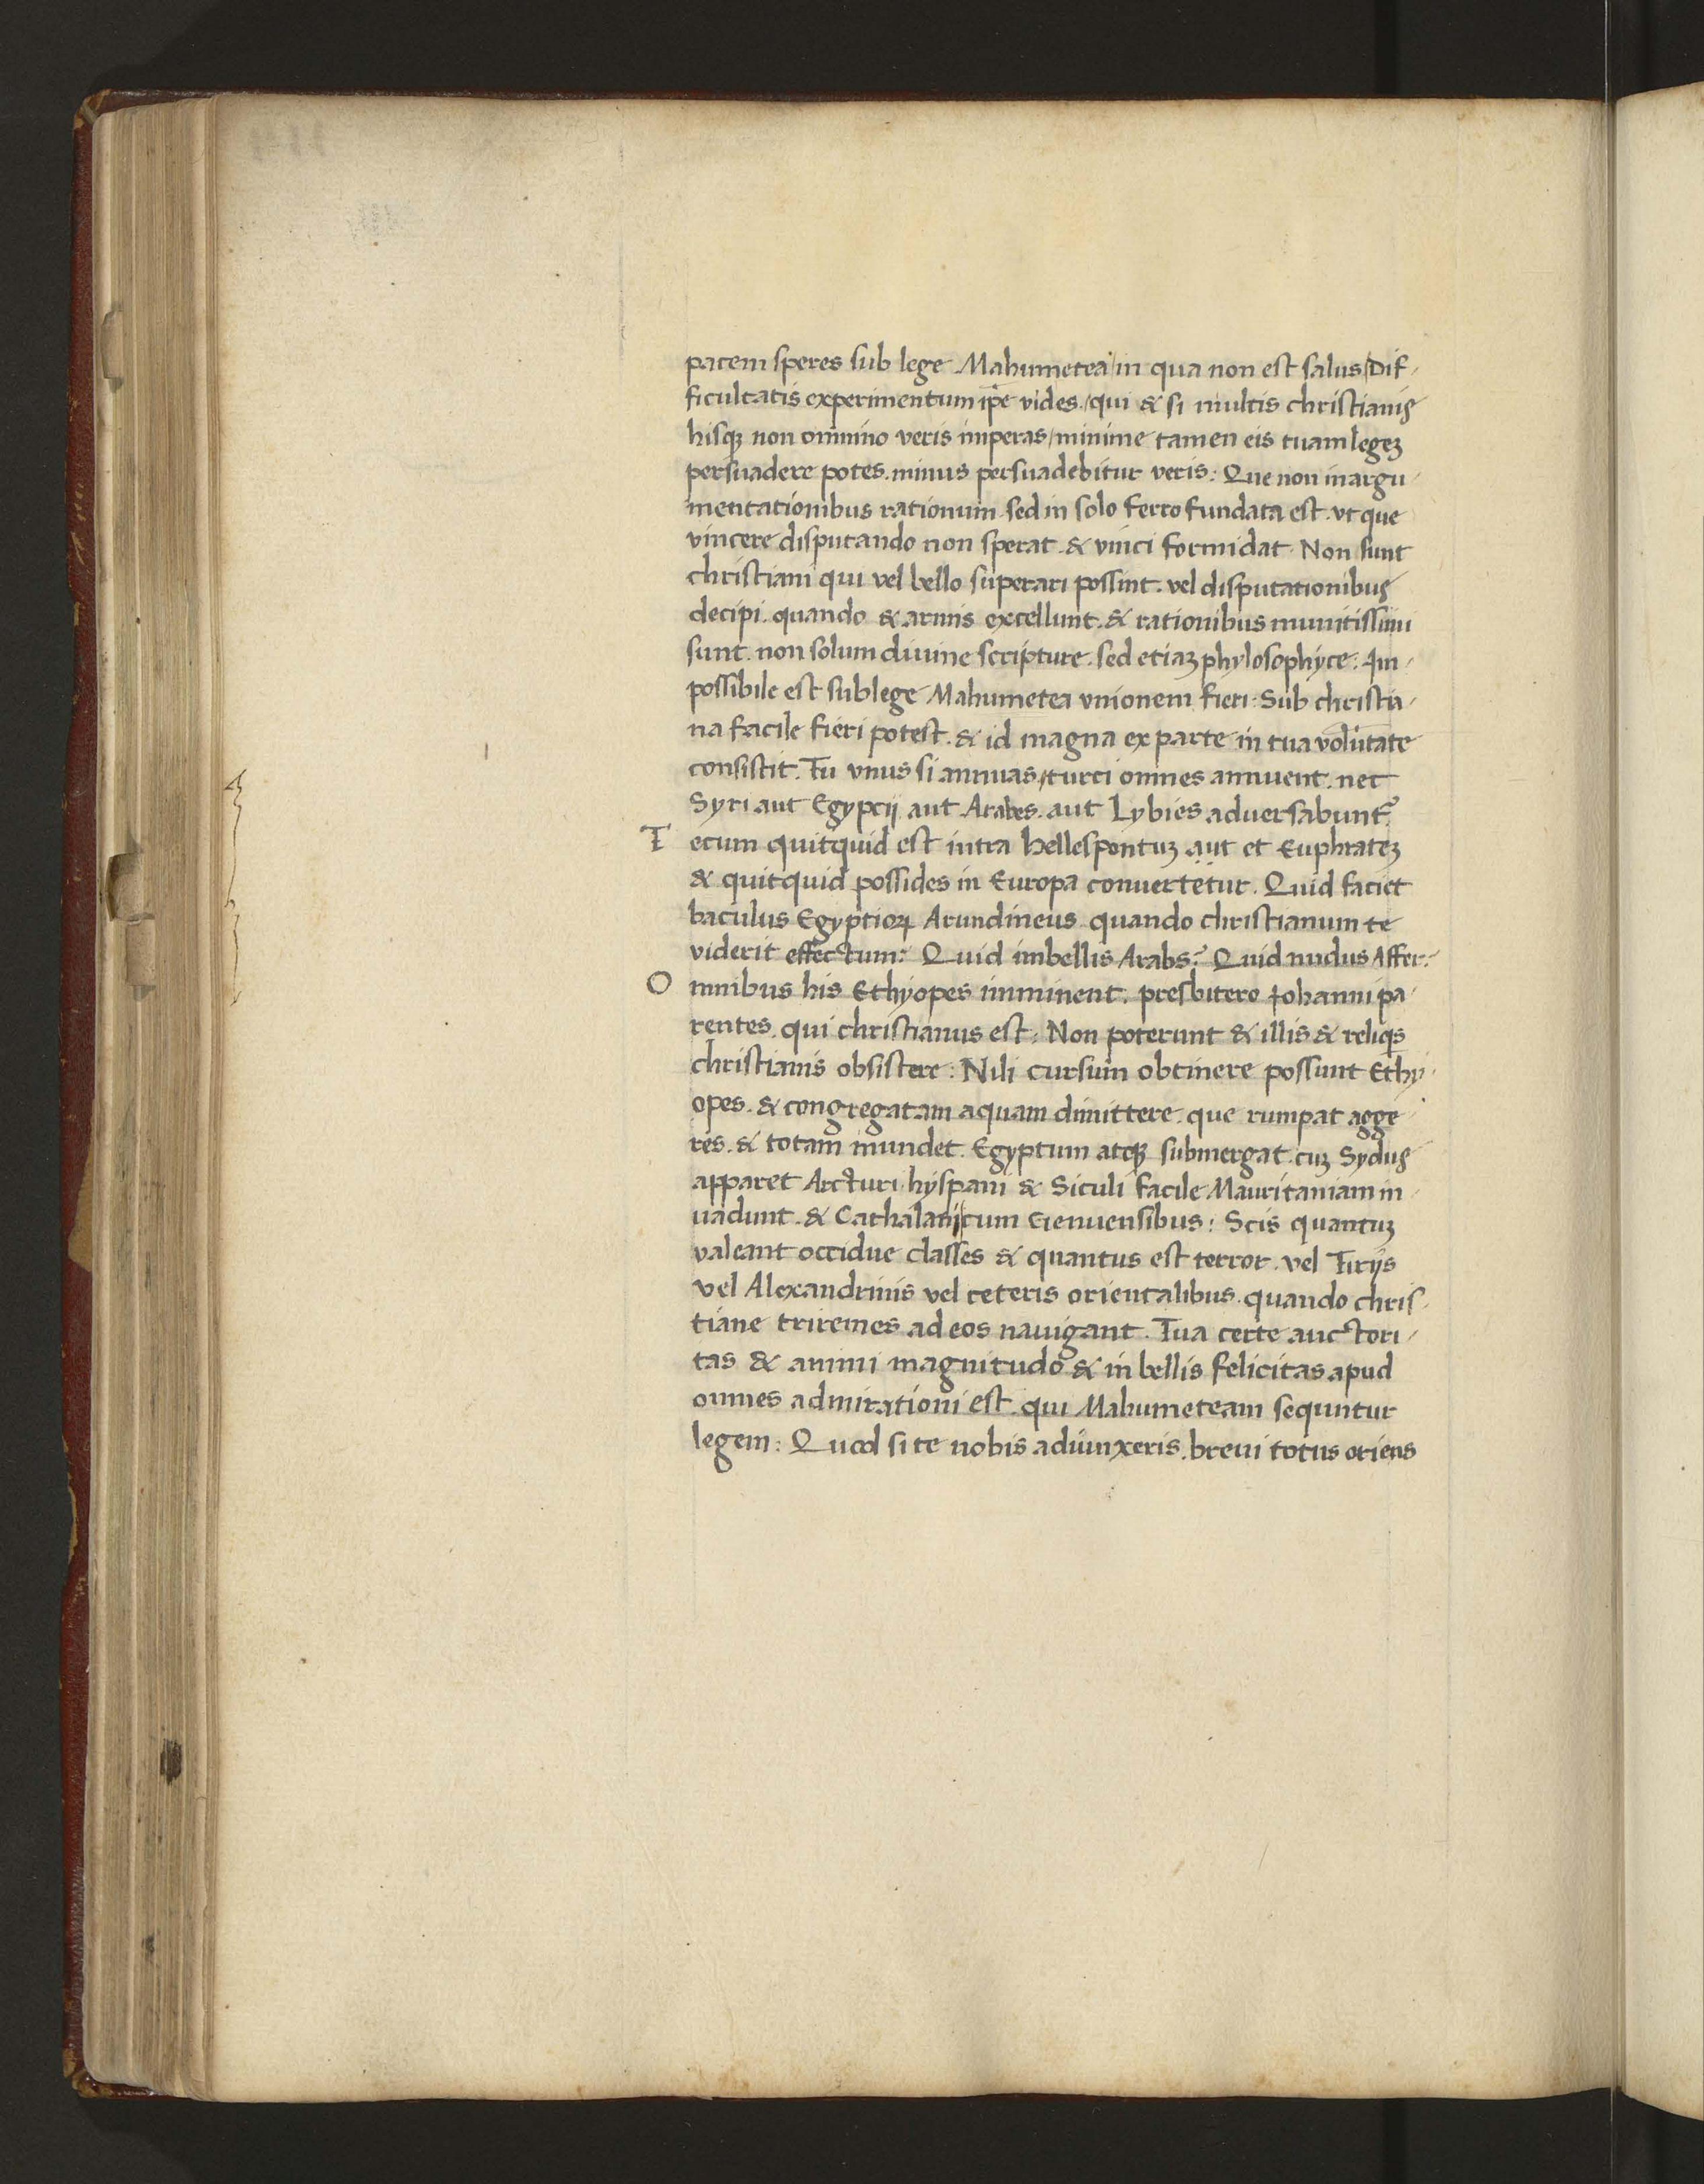 pacem speres sub lege Mahumetea / in qua non est salus / Dif-
ficultatis experimentum ip̄e vides / qui & si multis christianis
hisqꝫ non omnino veris imperas / minime tamen eis tuam legeꝫ
persuadere potes. minus persuadebitur veris: Que non in argu-
mentationibus rationum. sed in solo ferro fundata est. vt que
vincere disputando non sperat. & vinci formidat. Non sunt
christiani qui vel bello superari possint. vel disputationibus
decipi. quando & armis excellunt. & rationibus munitissimi
sunt. non solum diuine scripture. sed etiaꝫ phylosophyce: Im-
possibile est sub lege Mahumetea vnionem fieri: Sub christia-
na facile fieri potest. & id magna ex parte in tua volūtate
consistit. Tu vnus si annuas, turci omnes annuent. nec
Syri aut Egyptij aut Arabes. aut Lybies aduersabunt᷑
T ecum quitquid est intra hellespontuꝫ aut et Euphrateꝫ
& quitquid possides in Europa conuertetur. Quid faciet
baculus Egyptioꝝ Arundineus quando christianum te
viderit effectum? Quid imbellis Arabs? Quid nudus Affer?
O mnibus his Ethyopes imminent. presbitero Iohanni pa-
rentes. qui christianus est: Non poterunt & illis & reliqs
christianis obsistere: Nili cursum obtinere possunt Ethy-
opes. & congregatam aquam dimittere. que rumpat agge-
res. & totam inundet Egyptum atqꝫ submergat. cuꝫ Sydus
apparet Arcturi. hyspani & Siculi facile Mauritaniam in-
uadunt. & Cathalani cum Genuensibus: Scis quantuꝫ
valeant occidue classes & quantus est terror. vel Tirijs
vel Alexandrinis vel ceteris orientalibus. quando chris-
tiane triremes ad eos nauigant. Tua certe auctori-
tas & animi magnitudo & in bellis felicitas apud
omnes admirationi est. qui Mahumeteam sequntur
legem: Quod si te nobis adiunxeris. breui totus oriens